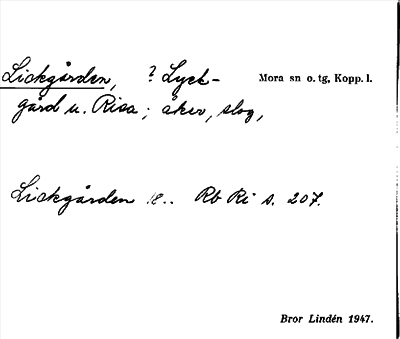 Lickgården, ? Lyck- Mora sn o. tg, Kopp. l.
gård u. Risa; åker, slog,
Lickgården .. Rb Ri s. 207.
Bror Lindén 1947.